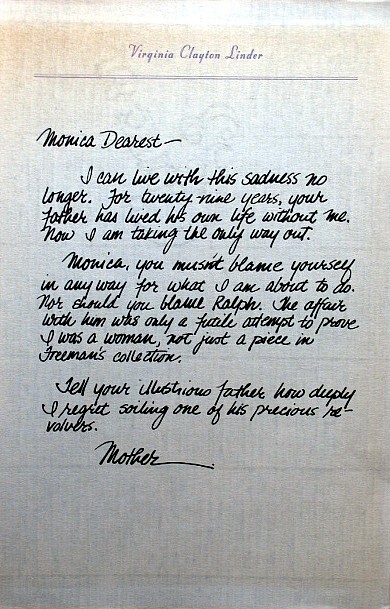 Virginia Clayton Linder
Monica Dearest—
I can live with this sadness no
longer. For twenty nine years, your
father has lived his own life without me.
Now I am taking the only way out.
Monica, you musn't blame yourself
in any way for what I am about to do.
Nor should you blame Ralph. The affair
with him was only a futile attempt to prove
I was a woman, not just a piece in
Freeman's collection.
Tell your illustrious father how deeply
I regret soiling one of his precious re-
volvers.
Mother